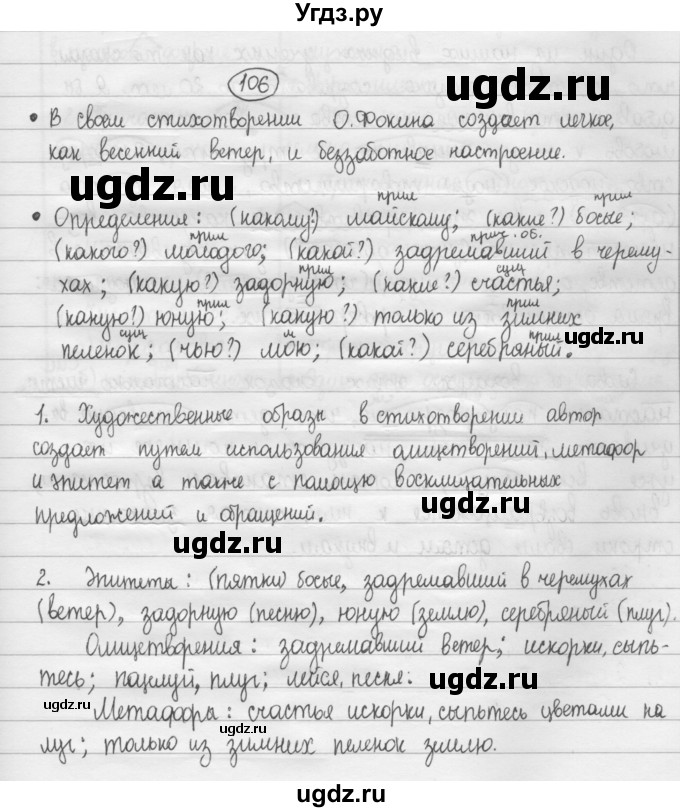 Угдз.ру
106
• В своем стихотворении О.Фокина создает легкое,
как весенний ветер, и беззаботное настроение.
прил прил
• Определения: (какому?) майскому; (какие?) босые;
прил прич. об.
(какого?) молодого; (какой?) задремавший в черему-
прил сущ
хах; (какую?) задорную; (какие?) счастья;
прил прил
(какую?) юную; (какую?) только из зимних
сущ м прил
пеленок; (чью?) мою; (какой?) серебряный.
1. Художественные образы в стихотворении автор
создает путем использования олицетворений, метафор
и эпитет а также с помощю восклицательных
предложений и обращений.
2. Эпитеты: (пятки) босые, задремавший в черемухах
(ветер), задорную (песню), юную (землю), серебряный (плуг).
Олицетворения: задремавший ветер; искорки, сыпь-
тесь; поцелуй, плуг; лейся, песня.
Метафоры: счастья искорки, сыпьтесь цветами на
луг; только из зимних пеленок землю.
ugdz.ru
ugdz.ru
ugdz.ru
ugdz.ru
ugdz.ru
ugdz.ru
ugdz.ru
ugdz.ru
ugdz.ru
ugdz.ru
ugdz.ru
ugdz.ru